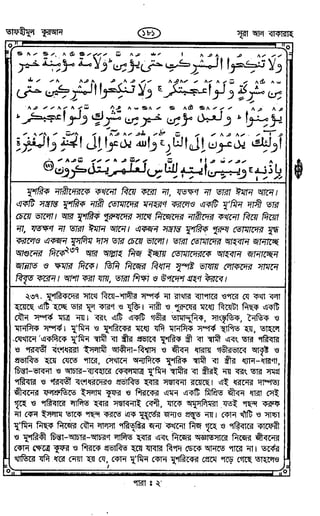 তাফহীমুল কুরআন ১৮১ সূরা আল বাকারাহ
وَلَا تَنْكِحُوا الْمُشْرِكٰتِ حَتّٰى يُؤْمِنَّ ۚ وَلَاَمَةٌ مُّؤْمِنَةٌ خَيْرٌ
مِّنْ مُّشْرِكَةٍ وَّلَوْ اَعْجَبَتْكُمْ ۚ وَلَا تُنْكِحُوا الْمُشْرِكِيْنَ حَتّٰى
يُؤْمِنُوْا ۚ وَلَعَبْدٌ مُّؤْمِنٌ خَيْرٌ مِّنْ مُّشْرِكٍ وَّلَوْ اَعْجَبَكُمْ ۗ
اُولٰٓئِكَ يَدْعُوْنَ اِلَى النَّارِ ۚ وَاللّٰهُ يَدْعُوْٓا اِلَى الْجَنَّةِ وَالْمَغْفِرَةِ
بِاِذْنِهٖ ۚ وَيُبَيِّنُ اٰيٰتِهٖ لِلنَّاسِ لَعَلَّهُمْ يَتَذَكَّرُوْنَ
মুশরিক নারীদেরকে কখনো বিয়ে করো না, যতক্ষণ না তারা ঈমান আনে।
একটি সম্ভ্রান্ত মুশরিক নারী তোমাদের মনহরণ করলেও একটি মু'মিন দাসী তার
চেয়ে ভালো। আর মুশরিক পুরুষদের সাথে নিজেদের নারীদের কখনো বিয়ে দিয়ো
না, যতক্ষণ না তারা ঈমান আনে। একজন সম্ভ্রান্ত মুশরিক পুরুষ তোমাদের মুগ্ধ
করলেও একজন মুসলিম দাস তার চেয়ে ভালো। তারা তোমাদের আহবান জানাচ্ছে
আগুনের দিকে২৩৭ আর আল্লাহ নিজ ইচ্ছায় তোমাদেরকে আহবান জানাচ্ছেন
জান্নাত ও ক্ষমার দিকে। তিনি নিজের বিধান সুস্পষ্ট ভাষায় লোকদের সামনে
বিবৃত করেন। আশা করা যায়, তারা শিক্ষা ও উপদেশ গ্রহণ করবে।
২৩৭. মুশরিকদের সাথে বিয়ে-শাদীর সম্পর্ক না রাখার ব্যাপারে ওপরে যে কথা বলা
হয়েছে এটি হচ্ছে তার মূল কারণ ও যুক্তি। নারী ও পুরুষের মধ্যে বিয়েটা নিছক একটি
যৌন সম্পর্ক মাত্র নয়। বরং এটি একটি গভীর তামাদ্দুনিক, সাংস্কৃতিক, নৈতিক ও
মানসিক সম্পর্ক। মু'মিন ও মুশরিকের মধ্যে যদি মানসিক সম্পর্ক স্থাপিত হয়, তাহলে
যেখানে একদিকে মু'মিন স্বামী বা স্ত্রীর প্রভাবে মুশরিক স্ত্রী বা স্বামী এবং তার পরিবার
ও পরবর্তী বংশধররা ইসলামী আকীদা-বিশ্বাস ও জীবন ধারায় গভীরভাবে আকৃষ্ট ও
প্রভাবিত হয়ে যেতে পারে, সেখানে অন্যদিকে মুশরিক স্বামী বা স্ত্রীর ধ্যান-ধারণা,
চিন্তা-ভাবনা ও আচার-ব্যবহারে কেবলমাত্র মু'মিন স্বামীর বা স্ত্রীরই নয় বরং তার সমগ্র
পরিবার ও পরবর্তী বংশধরদেরও প্রভাবিত হবার সম্ভাবনা রয়েছে। এই ধরনের দাম্পত্য
জীবনের ফলশ্রুতিতে ইসলাম কুফর ও শিরকের এমন একটি মিশ্রিত জীবন ধারা সেই
গৃহে ও পরিবারে লালিত হবার সম্ভাবনাই বেশী, যাকে অমুসলিমরা যতই পছন্দ করুক
না কেন ইসলাম তাকে পছন্দ করতে এক মুহূর্তের জন্যও প্রস্তুত নয়। কোন খাঁটি ও সাচ্চা
মু'মিন নিছক নিজের যৌন লালসা পরিতৃপ্তির জন্য কখনো নিজ গৃহে ও পরিবারে কাফেরী
ও মুশরিকী চিন্তা-আচার-আচরণ লালিত হবার এবং নিজের অজ্ঞাতসারে নিজের জীবনের
কোন ক্ষেত্রে কুফর ও শিরকে প্রভাবিত হয়ে যাবার বিপদ ডেকে আনতে পারে না। তর্কের
খাতিরে যদি ধরে নেয়া হয় যে, কোন মু'মিন কোন মুশরিকের প্রেমে পড়ে গেছে তাহলেও
পারা ঃ ২